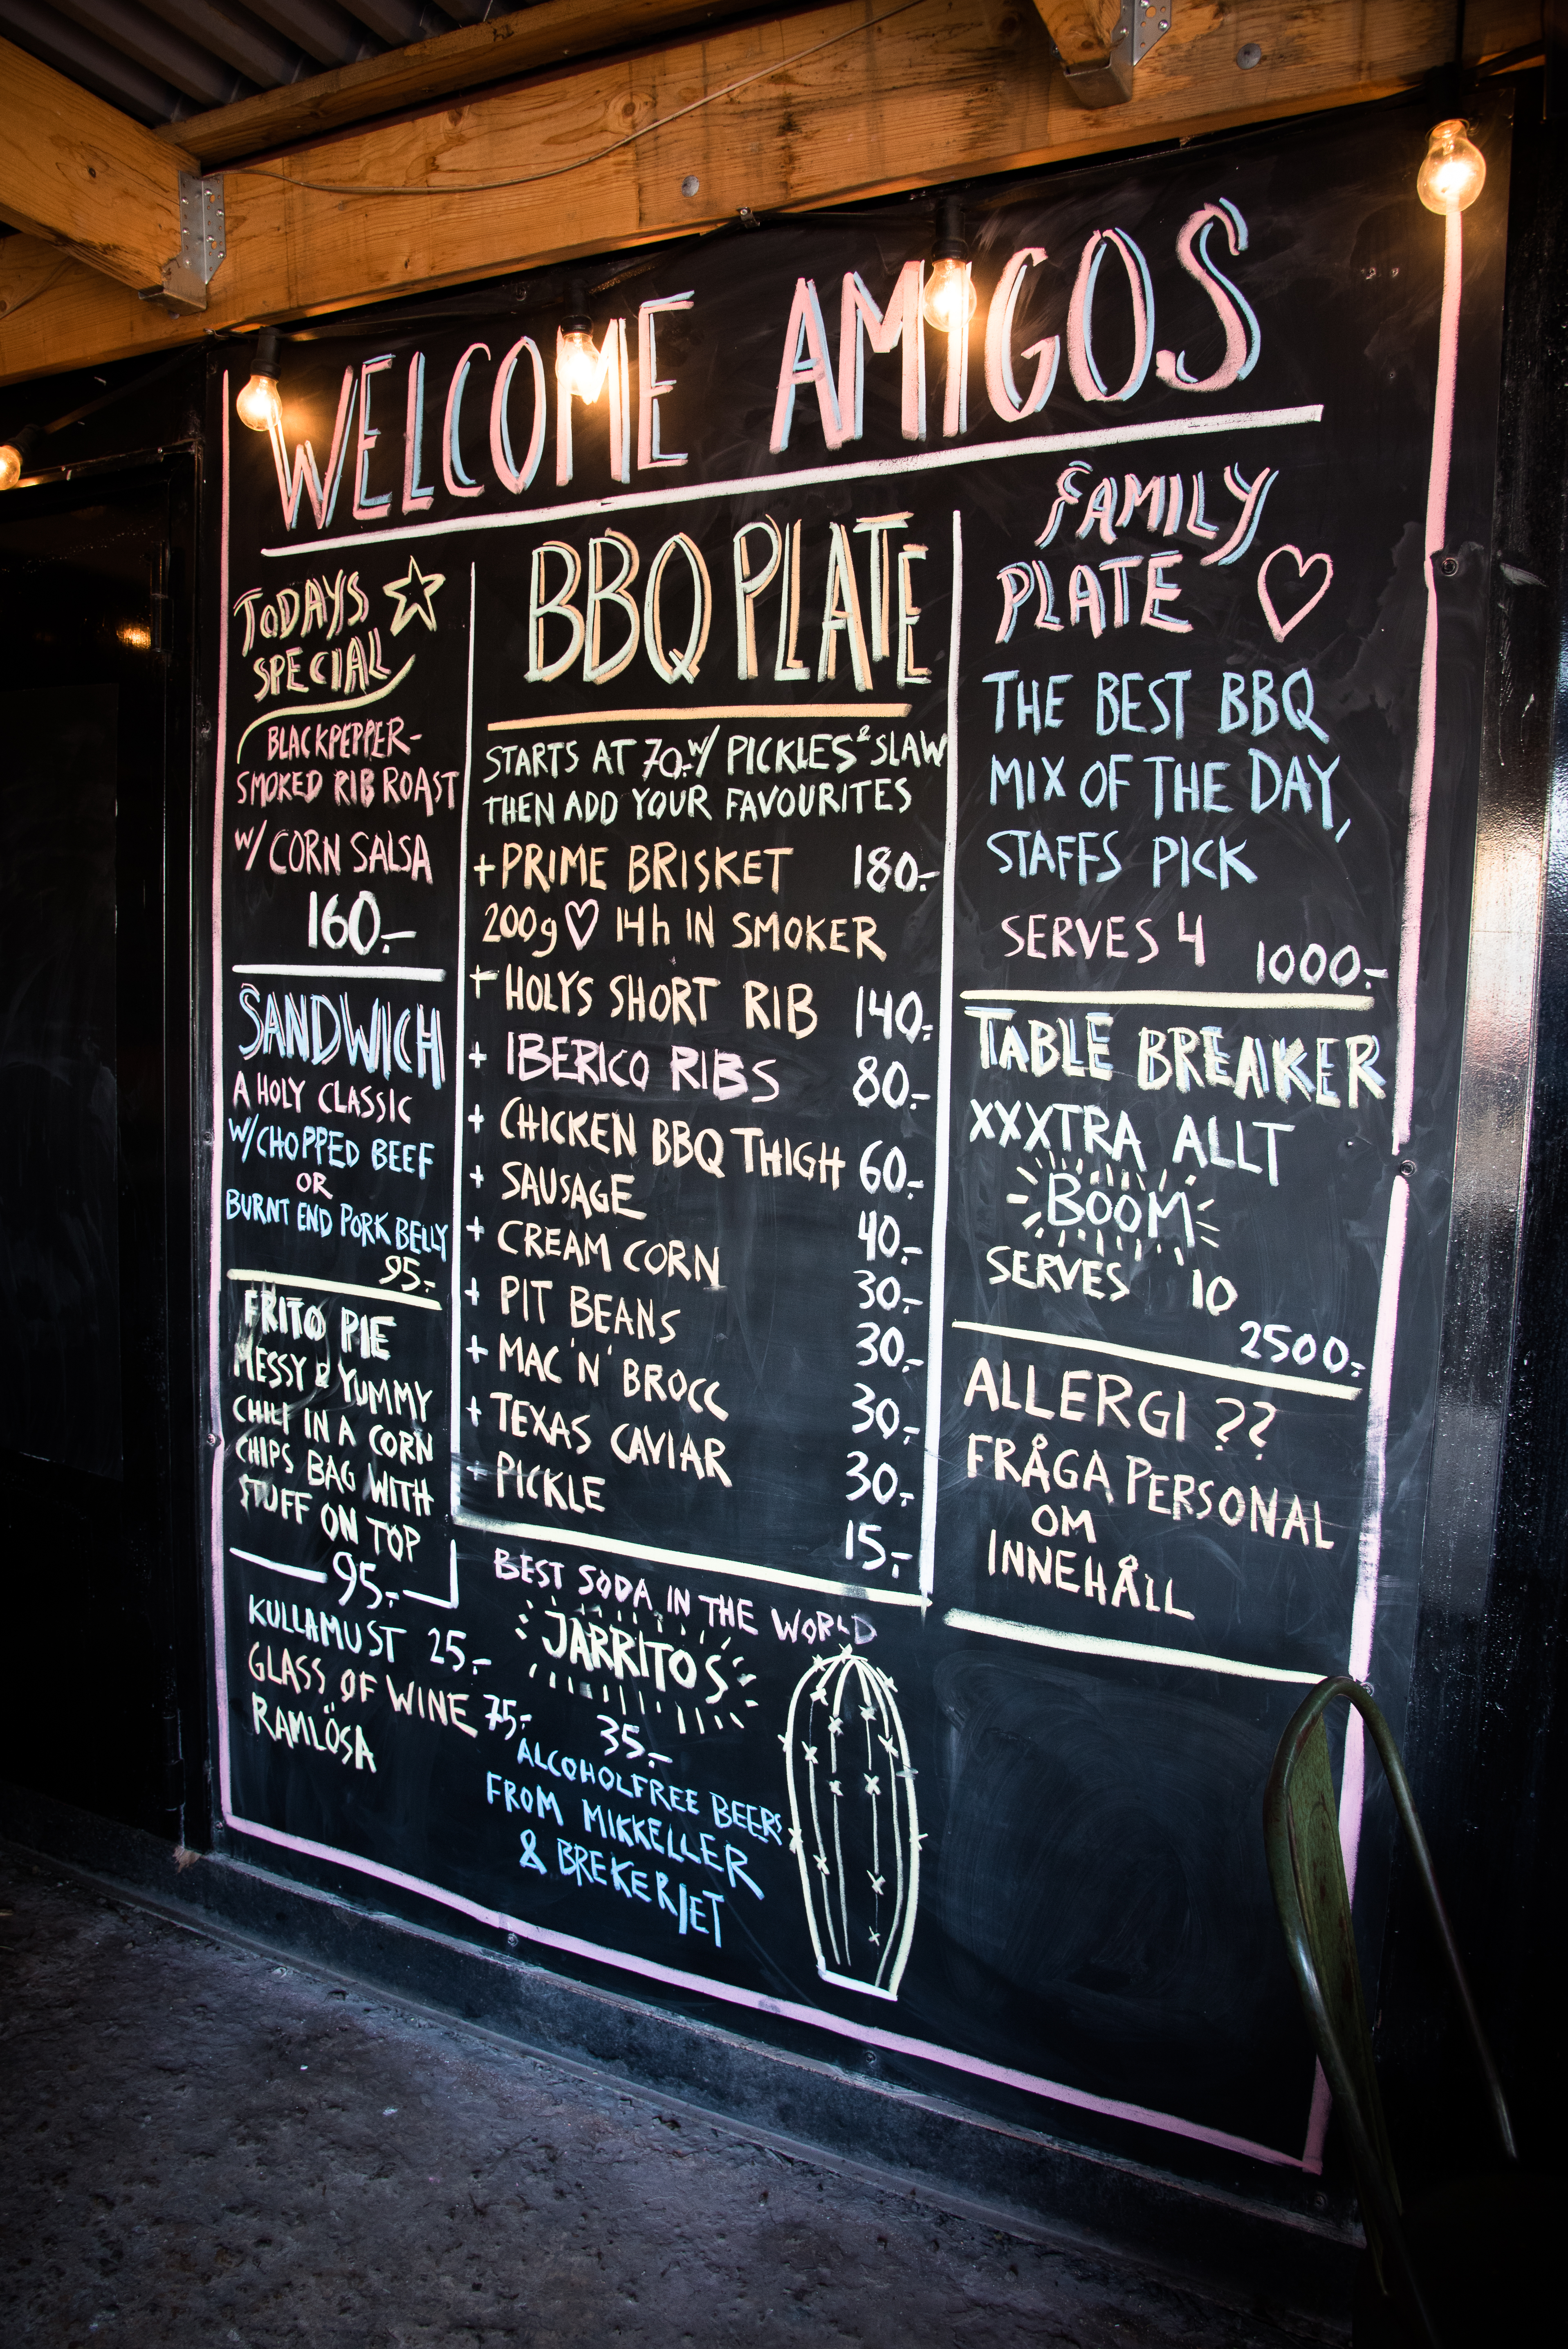 WELCOME AMIGOS
TODAYS
SPECIAL
BLACKPEPPER-
SMOKED RIB ROAST
W/ CORN SALSA
160.-
SANDWICH
A HOLY CLASSIC
W/CHOPPED BEEF
OR
BURNT END PORK BELLY
95.-
FRITO PIE
MESSY & YUMMY
CHILI IN A CORN
CHIPS BAG WITH
STUFF ON TOP
95.-
KULLAMUST 25.-
GLASS OF WINE 75.-
RAMLÖSA
BBQ PLATE
STARTS AT 70.- W/ PICKLES & SLAW
THEN ADD YOUR FAVOURITES
+ PRIME BRISKET 180.-
200g ♡ 14h IN SMOKER
+ HOLYS SHORT RIB 140.-
+ IBERICO RIBS 80.-
+ CHICKEN BBQ THIGH 60.-
+ SAUSAGE 40.-
+ CREAM CORN 30.-
+ PIT BEANS 30.-
+ MAC 'N' BROCC 30.-
+ TEXAS CAVIAR 30.-
+ PICKLE 15.-
BEST SODA IN THE WORLD
JARRITOS
35.-
ALCOHOLFREE BEERS
FROM MIKKELLER
& BREKERIET
FAMILY
PLATE ♡
THE BEST BBQ
MIX OF THE DAY,
STAFFS PICK
SERVES 4 1000.-
TABLE BREAKER
XXXTRA ALLT
BOOM
SERVES 10
2500.-
ALLERGI ??
FRÅGA PERSONAL
OM
INNEHÅLL